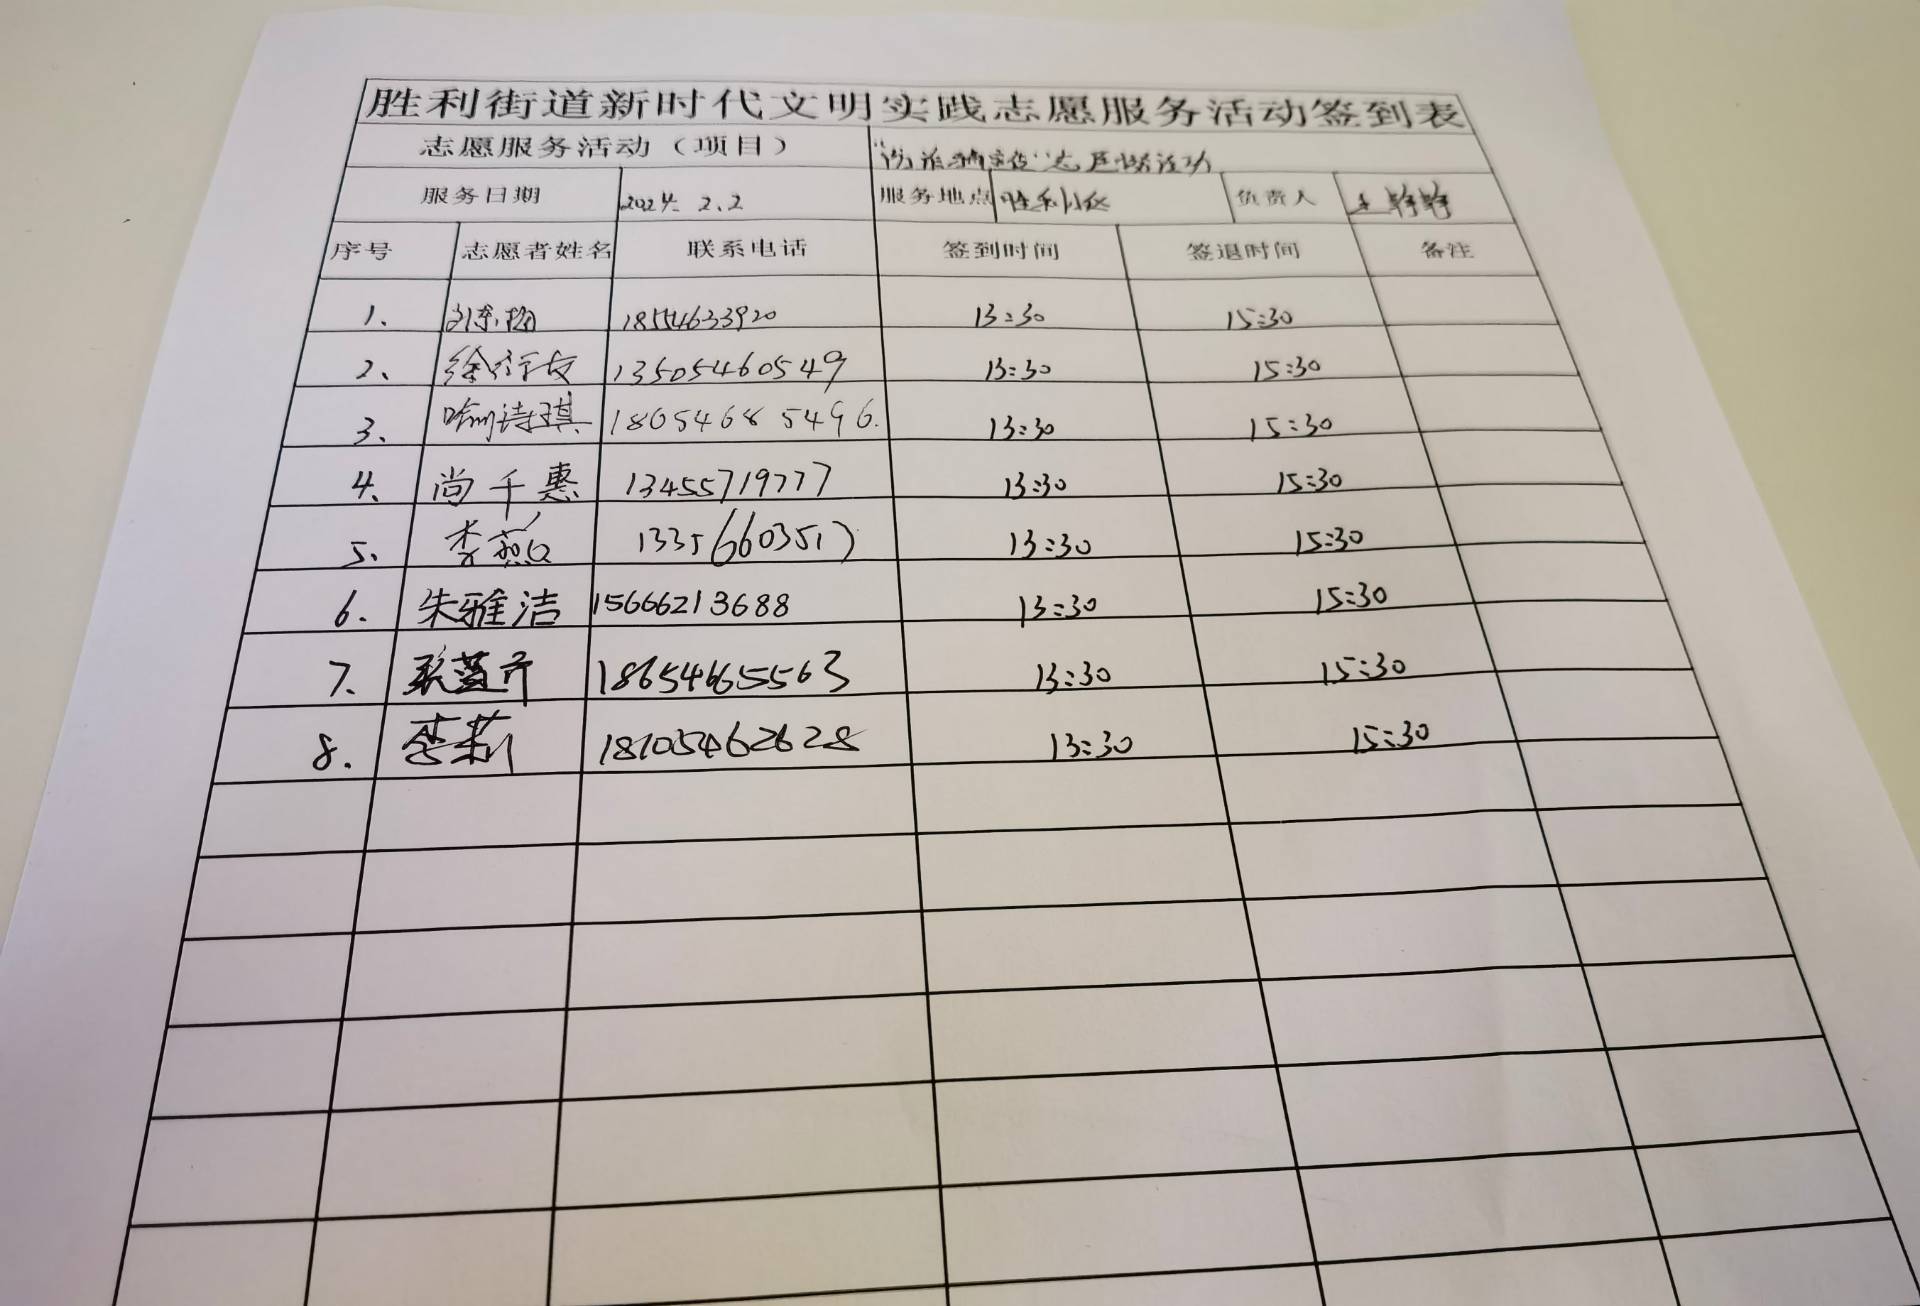 胜利街道新时代文明实践志愿服务活动签到表
志愿服务活动（项目）
服务日期 2024. 2.2 服务地点 胜利社区 负责人 王婷婷
序号 志愿者姓名 联系电话 签到时间 签退时间 备注
1、 18554633920 13:30 15:30
2、 13505460549 13:30 15:30
3、 喻诗琪 18054685496. 13:30 15:30
4、 尚千惠 13455719777 13:30 15:30
5、 李燕 13356603517 13:30 15:30
6. 朱雅洁 15666213688 13:30 15:30
7. 18654665563 13:30 15:30
8. 李莉 18105462628 13:30 15:30